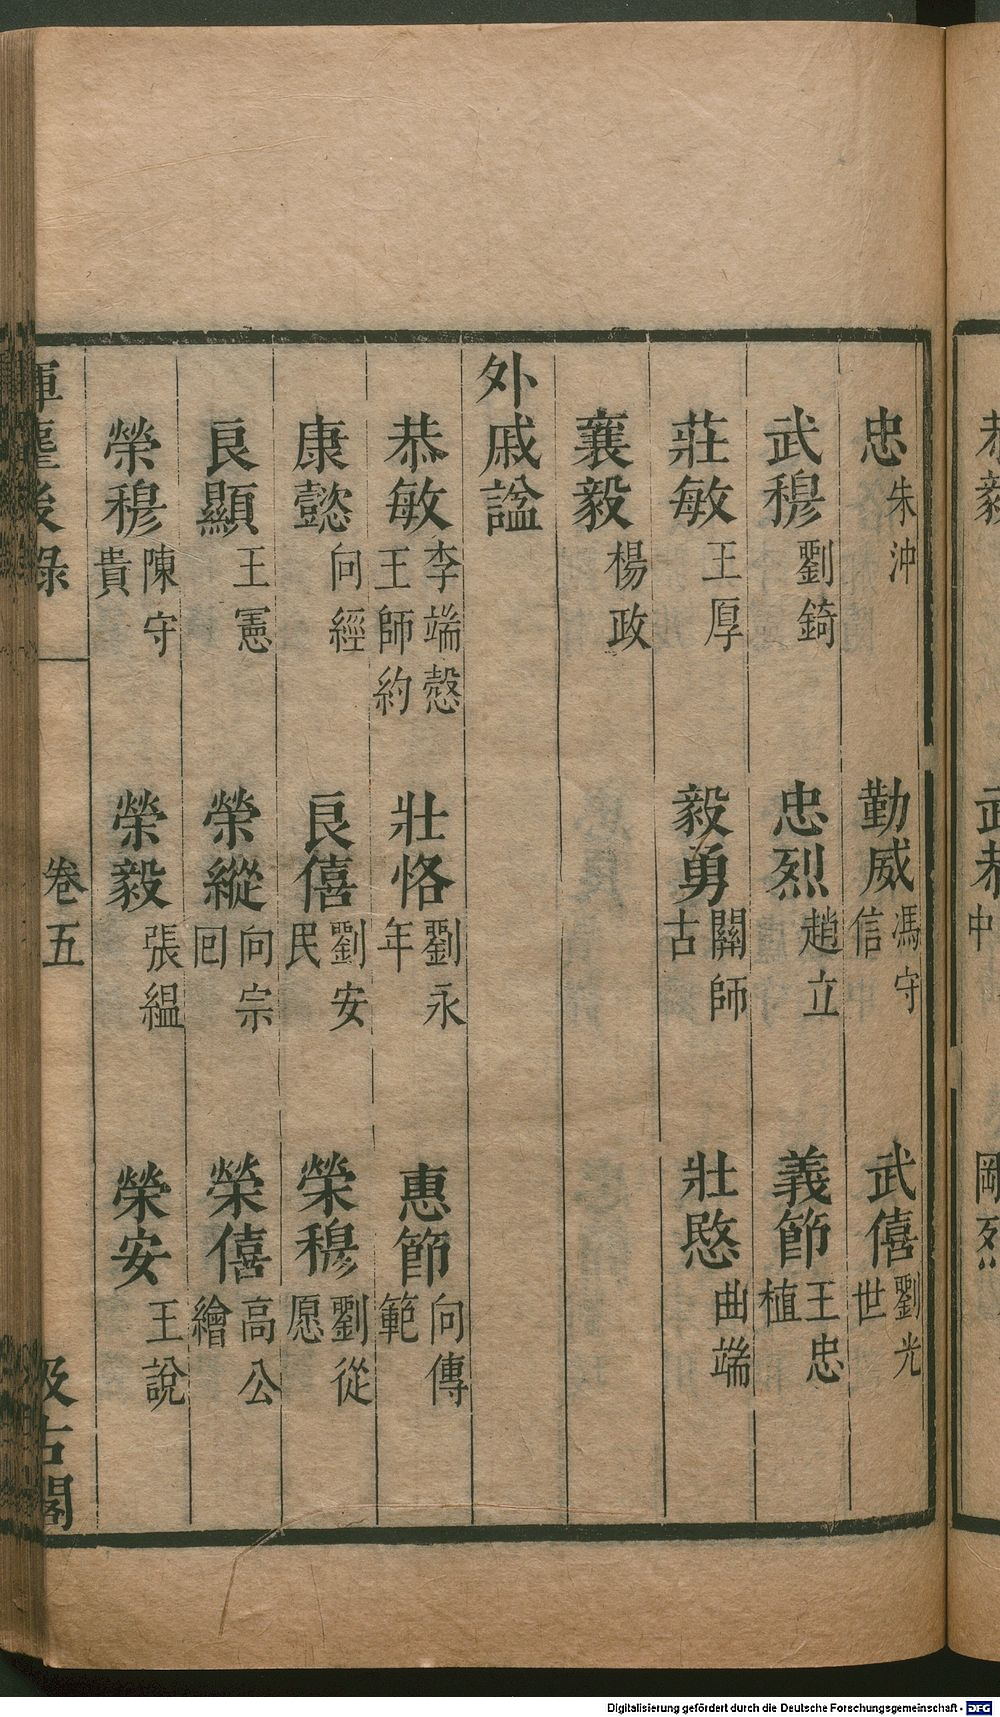 恭毅 武恭中 剛烈
忠朱沖 勤威馮守信 武僖劉光世
武穆劉錡 忠烈趙立 義節王忠植
莊敏王厚 毅勇關師古 壯愍曲端
襄毅楊政
外戚諡
恭敏李端慤王師約 壯恪劉永年 惠節向傳範
康懿向經 良僖劉安民 榮穆劉從愿
良顯王憲 榮縱向宗回 榮僖高公繪
榮穆陳守貴 榮毅張緼 榮安王說
揮麈後錄 卷五 汲古閣
Digitalisierung gefördert durch die Deutsche Forschungsgemeinschaft - DFG